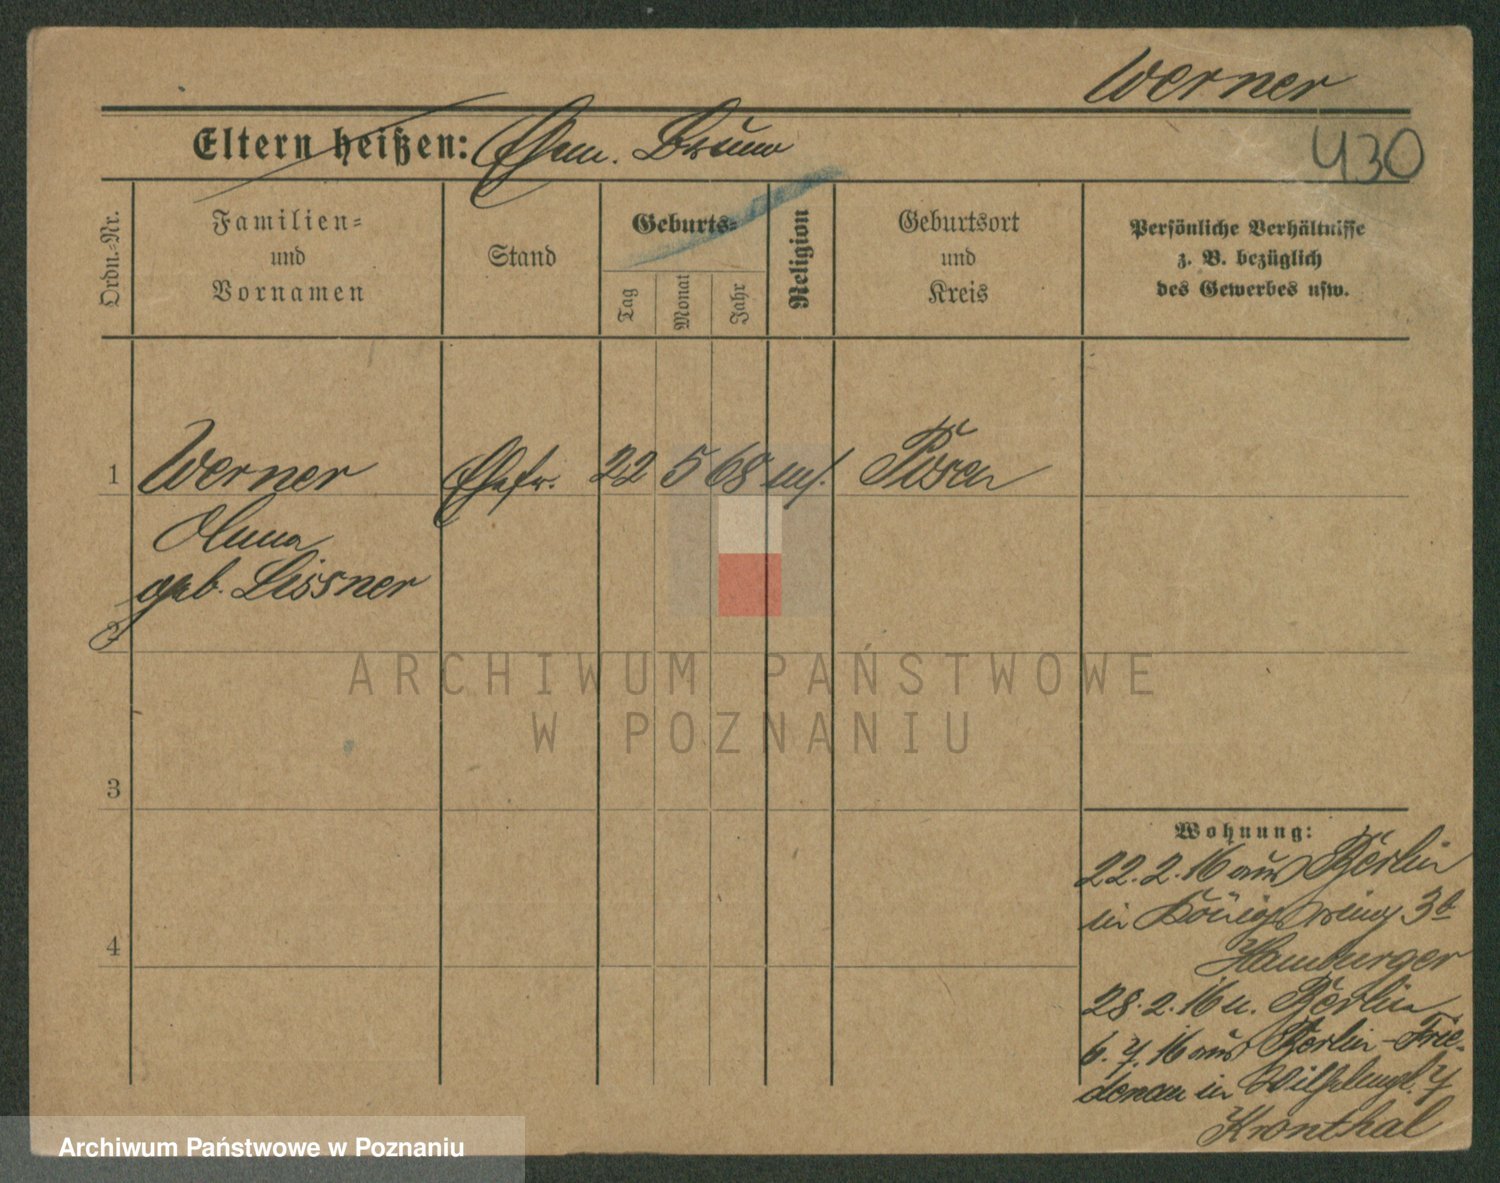 Werner
430
Eltern heißen: Ehem. Bruno
Ordn.-Nr.
Familien-
und
Vornamen
Stand
Geburts-
Tag
Monat
Jahr
Religion
Geburtsort
und
Kreis
Persönliche Verhältnisse
z. B. bezüglich
des Gewerbes usw.
1 Werner Ehefr. 22 5 68 Posen
Anna
geb. Lissner
2
3
4
Wohnung:
22.2.16 aus Berlin
in Königsring 3b
Hamburger
28.2.16 n. Berlin
6.7.16 aus Berlin-Frie-
denau in Wilhelmspl. 7
Kronthal
ARCHIWUM PAŃSTWOWE
W POZNANIU
Archiwum Państwowe w Poznaniu